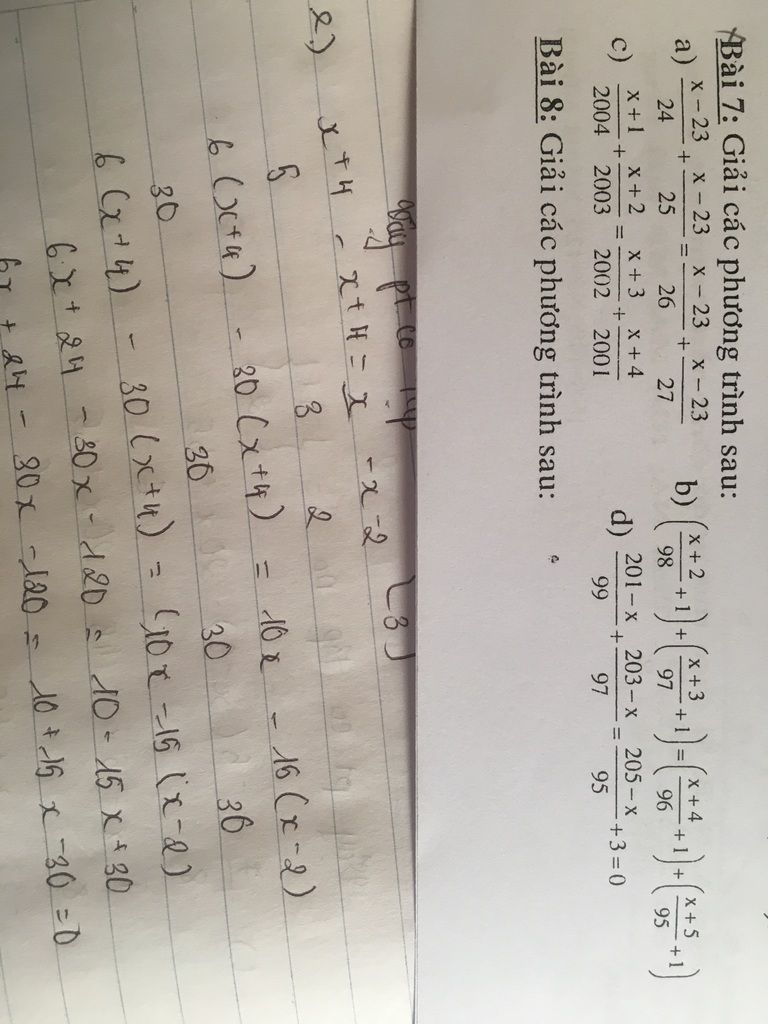 Bài 7: Giải các phương trình sau:
a) x – 23/24 + x – 23/25 = x – 23/26 + x – 23/27
b) (x + 2/98 + 1) + (x + 3/97 + 1) = (x + 4/96 + 1) + (x + 5/95 + 1)
c) x + 1/2004 + x + 2/2003 = x + 3/2002 + x + 4/2001
d) 201 – x/99 + 203 – x/97 = 205 – x/95 + 3 = 0
Bài 8: Giải các phương trình sau:
pt có
{3}
e) x + 4/5 - x + 4 = x/3 - x - 2/2
6(x+4)/30 - 30(x+4)/30 = 10x/30 - 15(x-2)/30
6(x+4) - 30(x+4) = 10x - 15(x-2)
6.x + 24 - 30x - 120 = 10 - 15x + 30
6x + 24 - 30x - 120 = 10 + 15x - 30 = 0